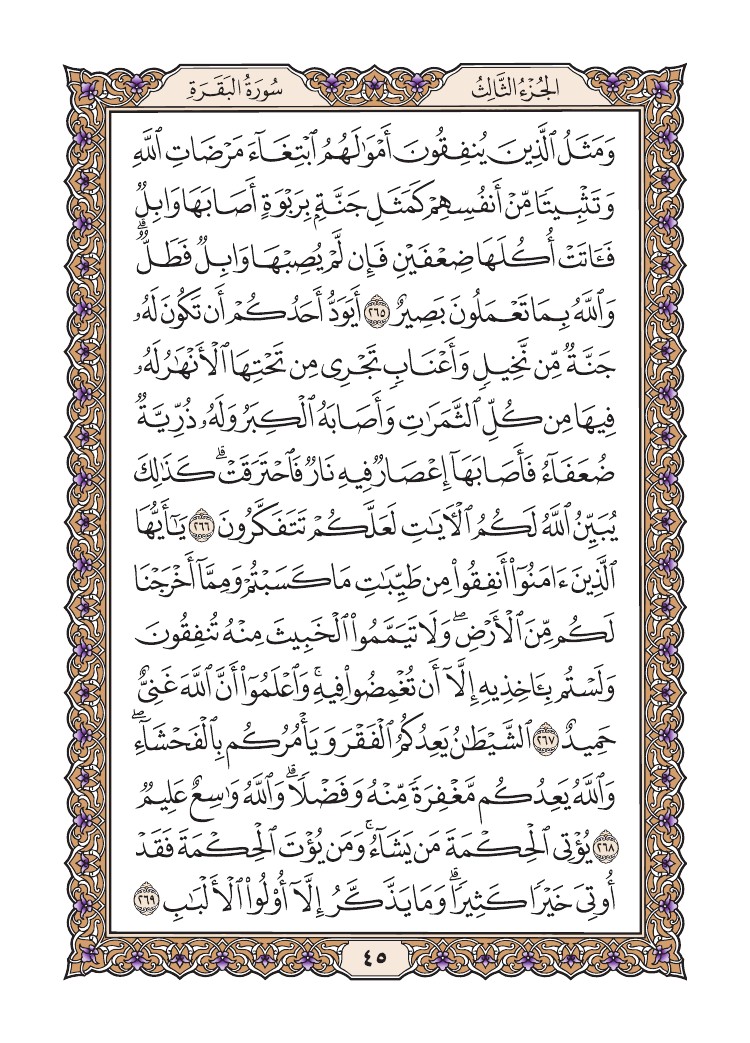 الجُزْءُ الثَّالِثُ
سُورَةُ البَقَرَةِ
وَمَثَلُ ٱلَّذِينَ يُنفِقُونَ أَمۡوَٰلَهُمُ ٱبۡتِغَآءَ مَرۡضَاتِ ٱللَّهِ
وَتَثۡبِيتٗا مِّنۡ أَنفُسِهِمۡ كَمَثَلِ جَنَّةِۭ بِرَبۡوَةٍ أَصَابَهَا وَابِلٞ
فَـَٔاتَتۡ أُكُلَهَا ضِعۡفَيۡنِ فَإِن لَّمۡ يُصِبۡهَا وَابِلٞ فَطَلّٞۗ
وَٱللَّهُ بِمَا تَعۡمَلُونَ بَصِيرٌ ٢٦٥ أَيَوَدُّ أَحَدُكُمۡ أَن تَكُونَ لَهُۥ
جَنَّةٞ مِّن نَّخِيلٖ وَأَعۡنَابٖ تَجۡرِي مِن تَحۡتِهَا ٱلۡأَنۡهَٰرُ لَهُۥ
فِيهَا مِن كُلِّ ٱلثَّمَرَٰتِ وَأَصَابَهُ ٱلۡكِبَرُ وَلَهُۥ ذُرِّيَّةٞ
ضُعَفَآءُ فَأَصَابَهَآ إِعۡصَارٞ فِيهِ نَارٞ فَٱحۡتَرَقَتۡۗ كَذَٰلِكَ
يُبَيِّنُ ٱللَّهُ لَكُمُ ٱلۡأٓيَٰتِ لَعَلَّكُمۡ تَتَفَكَّرُونَ ٢٦٦ يَٰٓأَيُّهَا
ٱلَّذِينَ ءَامَنُوٓاْ أَنفِقُواْ مِن طَيِّبَٰتِ مَا كَسَبۡتُمۡ وَمِمَّآ أَخۡرَجۡنَا
لَكُم مِّنَ ٱلۡأَرۡضِۖ وَلَا تَيَمَّمُواْ ٱلۡخَبِيثَ مِنۡهُ تُنفِقُونَ
وَلَسۡتُم بِـَٔاخِذِيهِ إِلَّآ أَن تُغۡمِضُواْ فِيهِۚ وَٱعۡلَمُوٓاْ أَنَّ ٱللَّهَ غَنِيٌّ
حَمِيدٌ ٢٦٧ ٱلشَّيۡطَٰنُ يَعِدُكُمُ ٱلۡفَقۡرَ وَيَأۡمُرُكُم بِٱلۡفَحۡشَآءِۖ
وَٱللَّهُ يَعِدُكُم مَّغۡفِرَةٗ مِّنۡهُ وَفَضۡلٗاۗ وَٱللَّهُ وَٰسِعٌ عَلِيمٞ
٢٦٨ يُؤۡتِي ٱلۡحِكۡمَةَ مَن يَشَآءُۚ وَمَن يُؤۡتَ ٱلۡحِكۡمَةَ فَقَدۡ
أُوتِيَ خَيۡرٗا كَثِيرٗاۗ وَمَا يَذَّكَّرُ إِلَّآ أُوْلُواْ ٱلۡأَلۡبَٰبِ ٢٦٩
٤٥